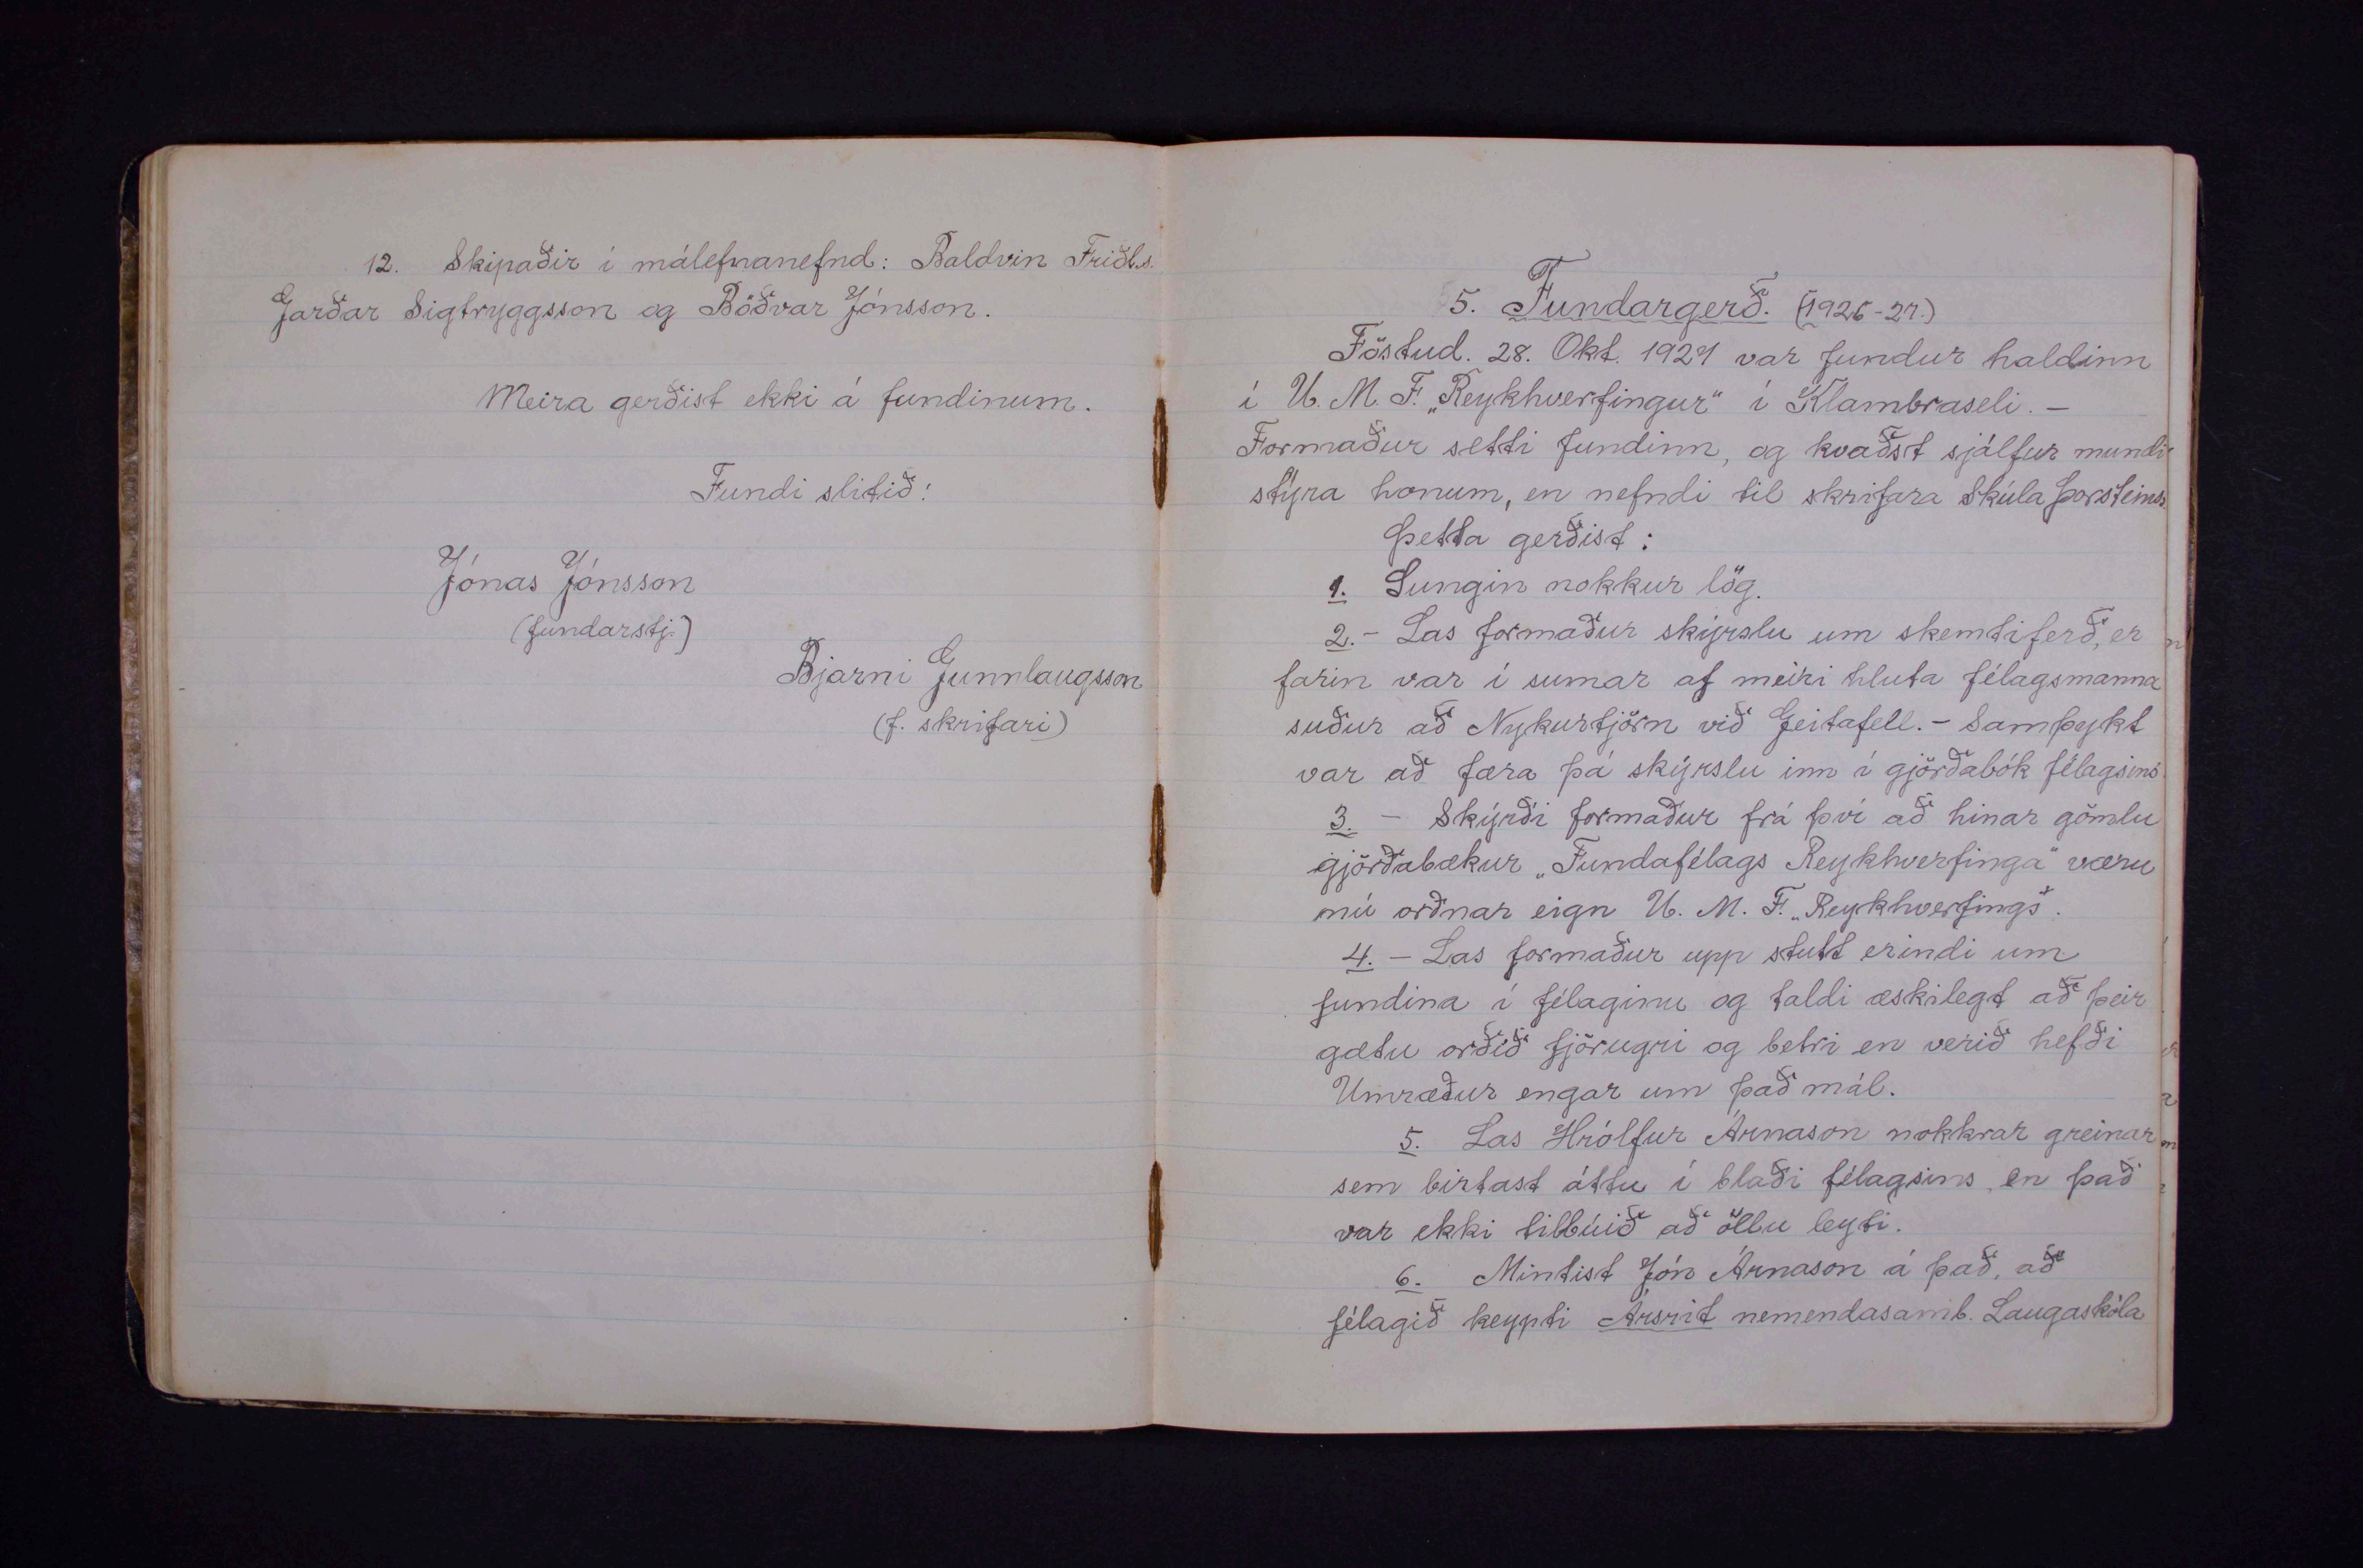 12. Skipaðir í málefnanefnd: Baldvin Friðl.s.
Garðar Sigtryggsson og Böðvar Jónsson.
Meira gerðist ekki á fundinum.
Fundi slitið!
Jónas Jónsson
(fundarstj.)
Bjarni Gunnlaugsson
(f. skrifari)
5. Fundargerð. (1926-27.)
Föstud. 28. Okt. 1927 var fundur haldinn
í U. M. F. „Reykhverfingur“ í Klambraseli. –
Formaður setti fundinn, og kvaðst sjálfur mundi
stýra honum, en nefndi til skrifara Skúla Þorsteinss.
Þetta gerðist:
1. Sungin nokkur lög.
2. – Las formaður skýrslu um skemtiferð, er
farin var í sumar af meiri hluta félagsmanna
suður að Nykurtjörn við Geitafell. – Samþykt
var að færa þá skýrslu inn í gjörðabók félagsins
3. – Skýrði formaður frá því að hinar gömlu
gjörðabækur „Fundafélags Reykhverfinga“ væru
nú orðnar eign U. M. F. „Reykhverfings“.
4. – Las formaður upp stutt erindi um
fundina í félaginu og taldi æskilegt að þeir
gætu orðið fjörugri og betri en verið hefði
Umræður engar um það mál.
5. Las Hrólfur Árnason nokkrar greinar
sem birtast áttu í blaði félagsins, en það
var ekki tilbúið að öllu leyti.
6. Mintist Jón Árnason á það, að
félagið keypti Ársrit nemendasamb. Laugaskóla